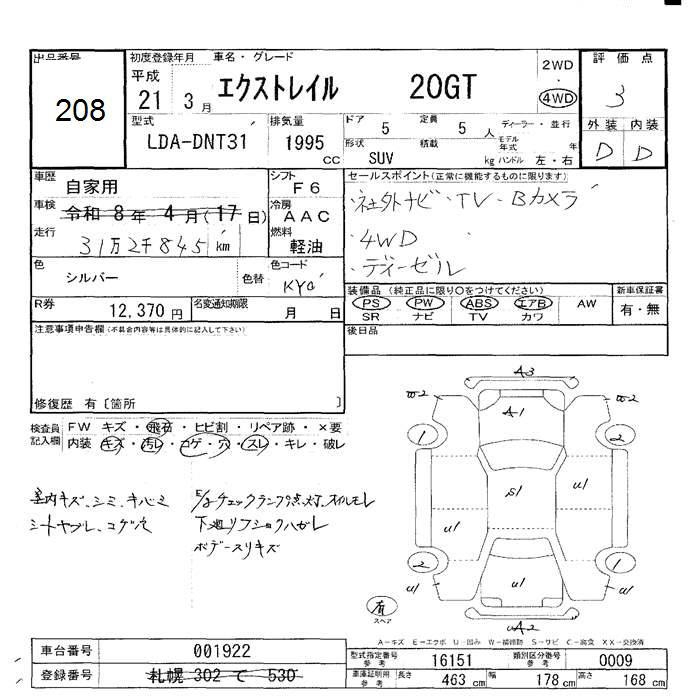 出品番号
208
初度登録年月
車名・グレード
平成
21 3月
エクストレイル 20GT
2WD
・
4WD
評価点
3
外装 内装
D D
型式
LDA-DNT31
排気量
1995
cc
ドア 5
定員 5 人
ディーラー・並行
形状 SUV
積載 kg
モデル年式 年
ハンドル 左・右
車歴
自家用
シフト
F6
車検
令和 8年 4月(17日)
冷房
AAC
走行
31万2千845 km
燃料
軽油
色
シルバー
色替
色コード
KY0
R券
12,370 円
名変通知期限
月 日
セールスポイント(正常に機能するものに限ります)
・社外ナビ・TV・Bカメラ
・4WD
・ディーゼル
装備品(純正品に限り○をつけてください)
PS PW ABS エアB AW
SR ナビ TV カワ
新車保証書
有・無
注意事項申告欄(不具合内容等は具体的に記入して下さい)
後日品
修復歴 有〔箇所 〕
検査員
記入欄
FW キズ・飛石・ヒビ割・リペア跡・×要
内装 キズ・汚レ・コゲ・穴・スレ・キレ・破レ
室内キズ、シミ、キバミ
シートヤブレ、コゲ穴
E/gチェックランプ点灯、オイルモレ
下廻リフショクハガレ
ボデースリキズ
A3
W2 W2
A1
1 2
S1
U1 U1
U1
2 1
U1 U1 U1
UA2
有
スペア
A-キズ E-エクボ U-凹み W-補修跡 S-サビ C-腐食 XX-交換済
車台番号
001922
登録番号
札幌 302 て 530
型式指定番号
参考
16151
類別区分番号
参考
0009
車庫証明用
参考
長さ 463 cm
幅 178 cm
高さ 168 cm